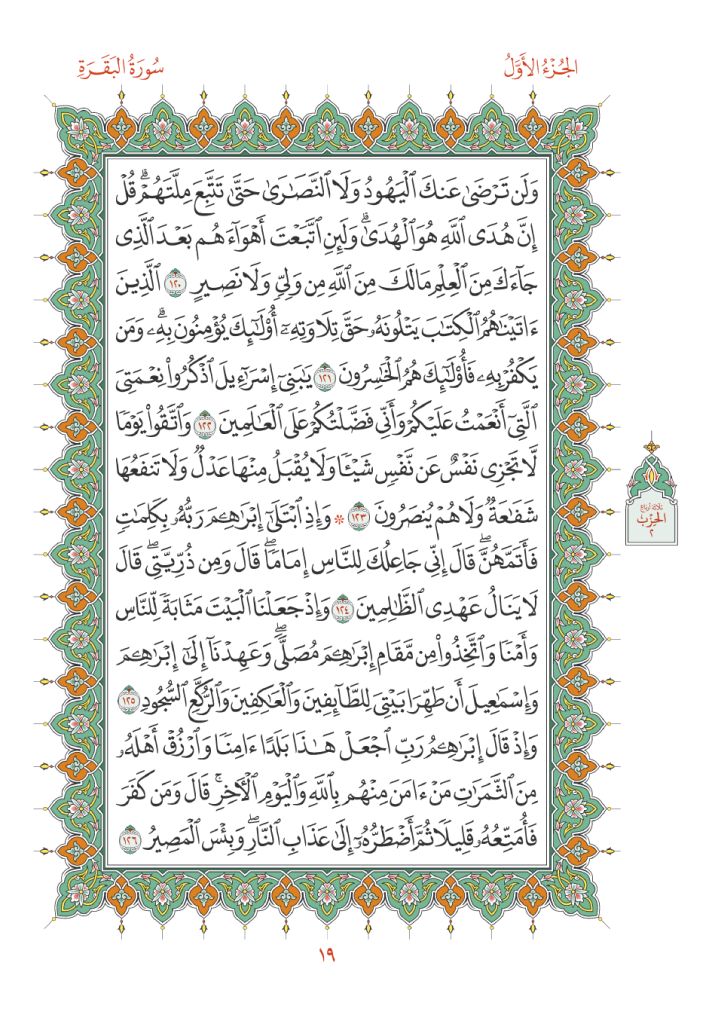 الجُزْءُ الأَوَّلُ
سُورَةُ البَقَرَةِ
وَلَن تَرْضَىٰ عَنكَ ٱلْيَهُودُ وَلَا ٱلنَّصَٰرَىٰ حَتَّىٰ تَتَّبِعَ مِلَّتَهُمْۗ قُلْ
إِنَّ هُدَى ٱللَّهِ هُوَ ٱلْهُدَىٰۗ وَلَئِنِ ٱتَّبَعْتَ أَهْوَآءَهُم بَعْدَ ٱلَّذِى
جَآءَكَ مِنَ ٱلْعِلْمِ مَالَكَ مِنَ ٱللَّهِ مِن وَلِىٍّ وَلَا نَصِيرٍ ١٢٠ ٱلَّذِينَ
ءَاتَيْنَٰهُمُ ٱلْكِتَٰبَ يَتْلُونَهُۥ حَقَّ تِلَاوَتِهِۦٓ أُو۟لَٰٓئِكَ يُؤْمِنُونَ بِهِۦۗ وَمَن
يَكْفُرْ بِهِۦ فَأُو۟لَٰٓئِكَ هُمُ ٱلْخَٰسِرُونَ ١٢١ يَٰبَنِىٓ إِسْرَٰٓءِيلَ ٱذْكُرُوا۟ نِعْمَتِىَ
ٱلَّتِىٓ أَنْعَمْتُ عَلَيْكُمْ وَأَنِّى فَضَّلْتُكُمْ عَلَى ٱلْعَٰلَمِينَ ١٢٢ وَٱتَّقُوا۟ يَوْمًا
لَّا تَجْزِى نَفْسٌ عَن نَّفْسٍ شَيْـًٔا وَلَا يُقْبَلُ مِنْهَا عَدْلٌ وَلَا تَنفَعُهَا
شَفَٰعَةٌ وَلَا هُمْ يُنصَرُونَ ١٢٣ ۞ وَإِذِ ٱبْتَلَىٰٓ إِبْرَٰهِـۧمَ رَبُّهُۥ بِكَلِمَٰتٍ
فَأَتَمَّهُنَّۖ قَالَ إِنِّى جَاعِلُكَ لِلنَّاسِ إِمَامًاۖ قَالَ وَمِن ذُرِّيَّتِىۖ قَالَ
لَا يَنَالُ عَهْدِى ٱلظَّٰلِمِينَ ١٢٤ وَإِذْ جَعَلْنَا ٱلْبَيْتَ مَثَابَةً لِّلنَّاسِ
وَأَمْنًا وَٱتَّخِذُوا۟ مِن مَّقَامِ إِبْرَٰهِـۧمَ مُصَلًّىۖ وَعَهِدْنَآ إِلَىٰٓ إِبْرَٰهِـۧمَ
وَإِسْمَٰعِيلَ أَن طَهِّرَا بَيْتِىَ لِلطَّآئِفِينَ وَٱلْعَٰكِفِينَ وَٱلرُّكَّعِ ٱلسُّجُودِ ١٢٥
وَإِذْ قَالَ إِبْرَٰهِـۧمُ رَبِّ ٱجْعَلْ هَٰذَا بَلَدًا ءَامِنًا وَٱرْزُقْ أَهْلَهُۥ
مِنَ ٱلثَّمَرَٰتِ مَنْ ءَامَنَ مِنْهُم بِٱللَّهِ وَٱلْيَوْمِ ٱلْءَاخِرِۚ قَالَ وَمَن كَفَرَ
فَأُمَتِّعُهُۥ قَلِيلًا ثُمَّ أَضْطَرُّهُۥٓ إِلَىٰ عَذَابِ ٱلنَّارِۖ وَبِئْسَ ٱلْمَصِيرُ ١٢٦
ثلاثة أرباع
الحِزْب
٢
١٩